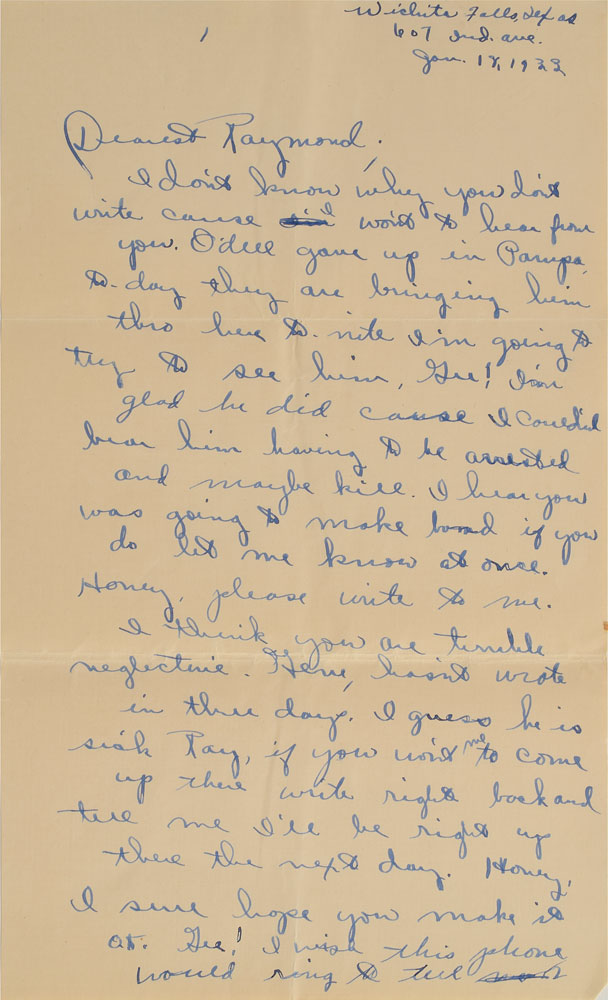 Wichita Falls, Texas
607 Ind. ave.
Jan. 18, 1933
Dearest Raymond,
I don't know why you don't
write cause I won't to hear from
you. O'dell gave up in Pampa,
to-day they are bringing him
thro here to-nite I'm going to
try to see him, Gee! I'm
glad he did cause I couldn't
bear him having to be arrested
and maybe kill. I hear you
was going to make bond if you
do let me know at once.
Honey, please write to me.
I think you are terrible
neglectine. Gene, hasn't wrote
in three days. I guess he is
sick Ray, if you won't me to come
up there write right back and
tell me I'll be right up
there the next day. Honey,
I sure hope you make it
at. Gee! I wish this phone
would ring to tell